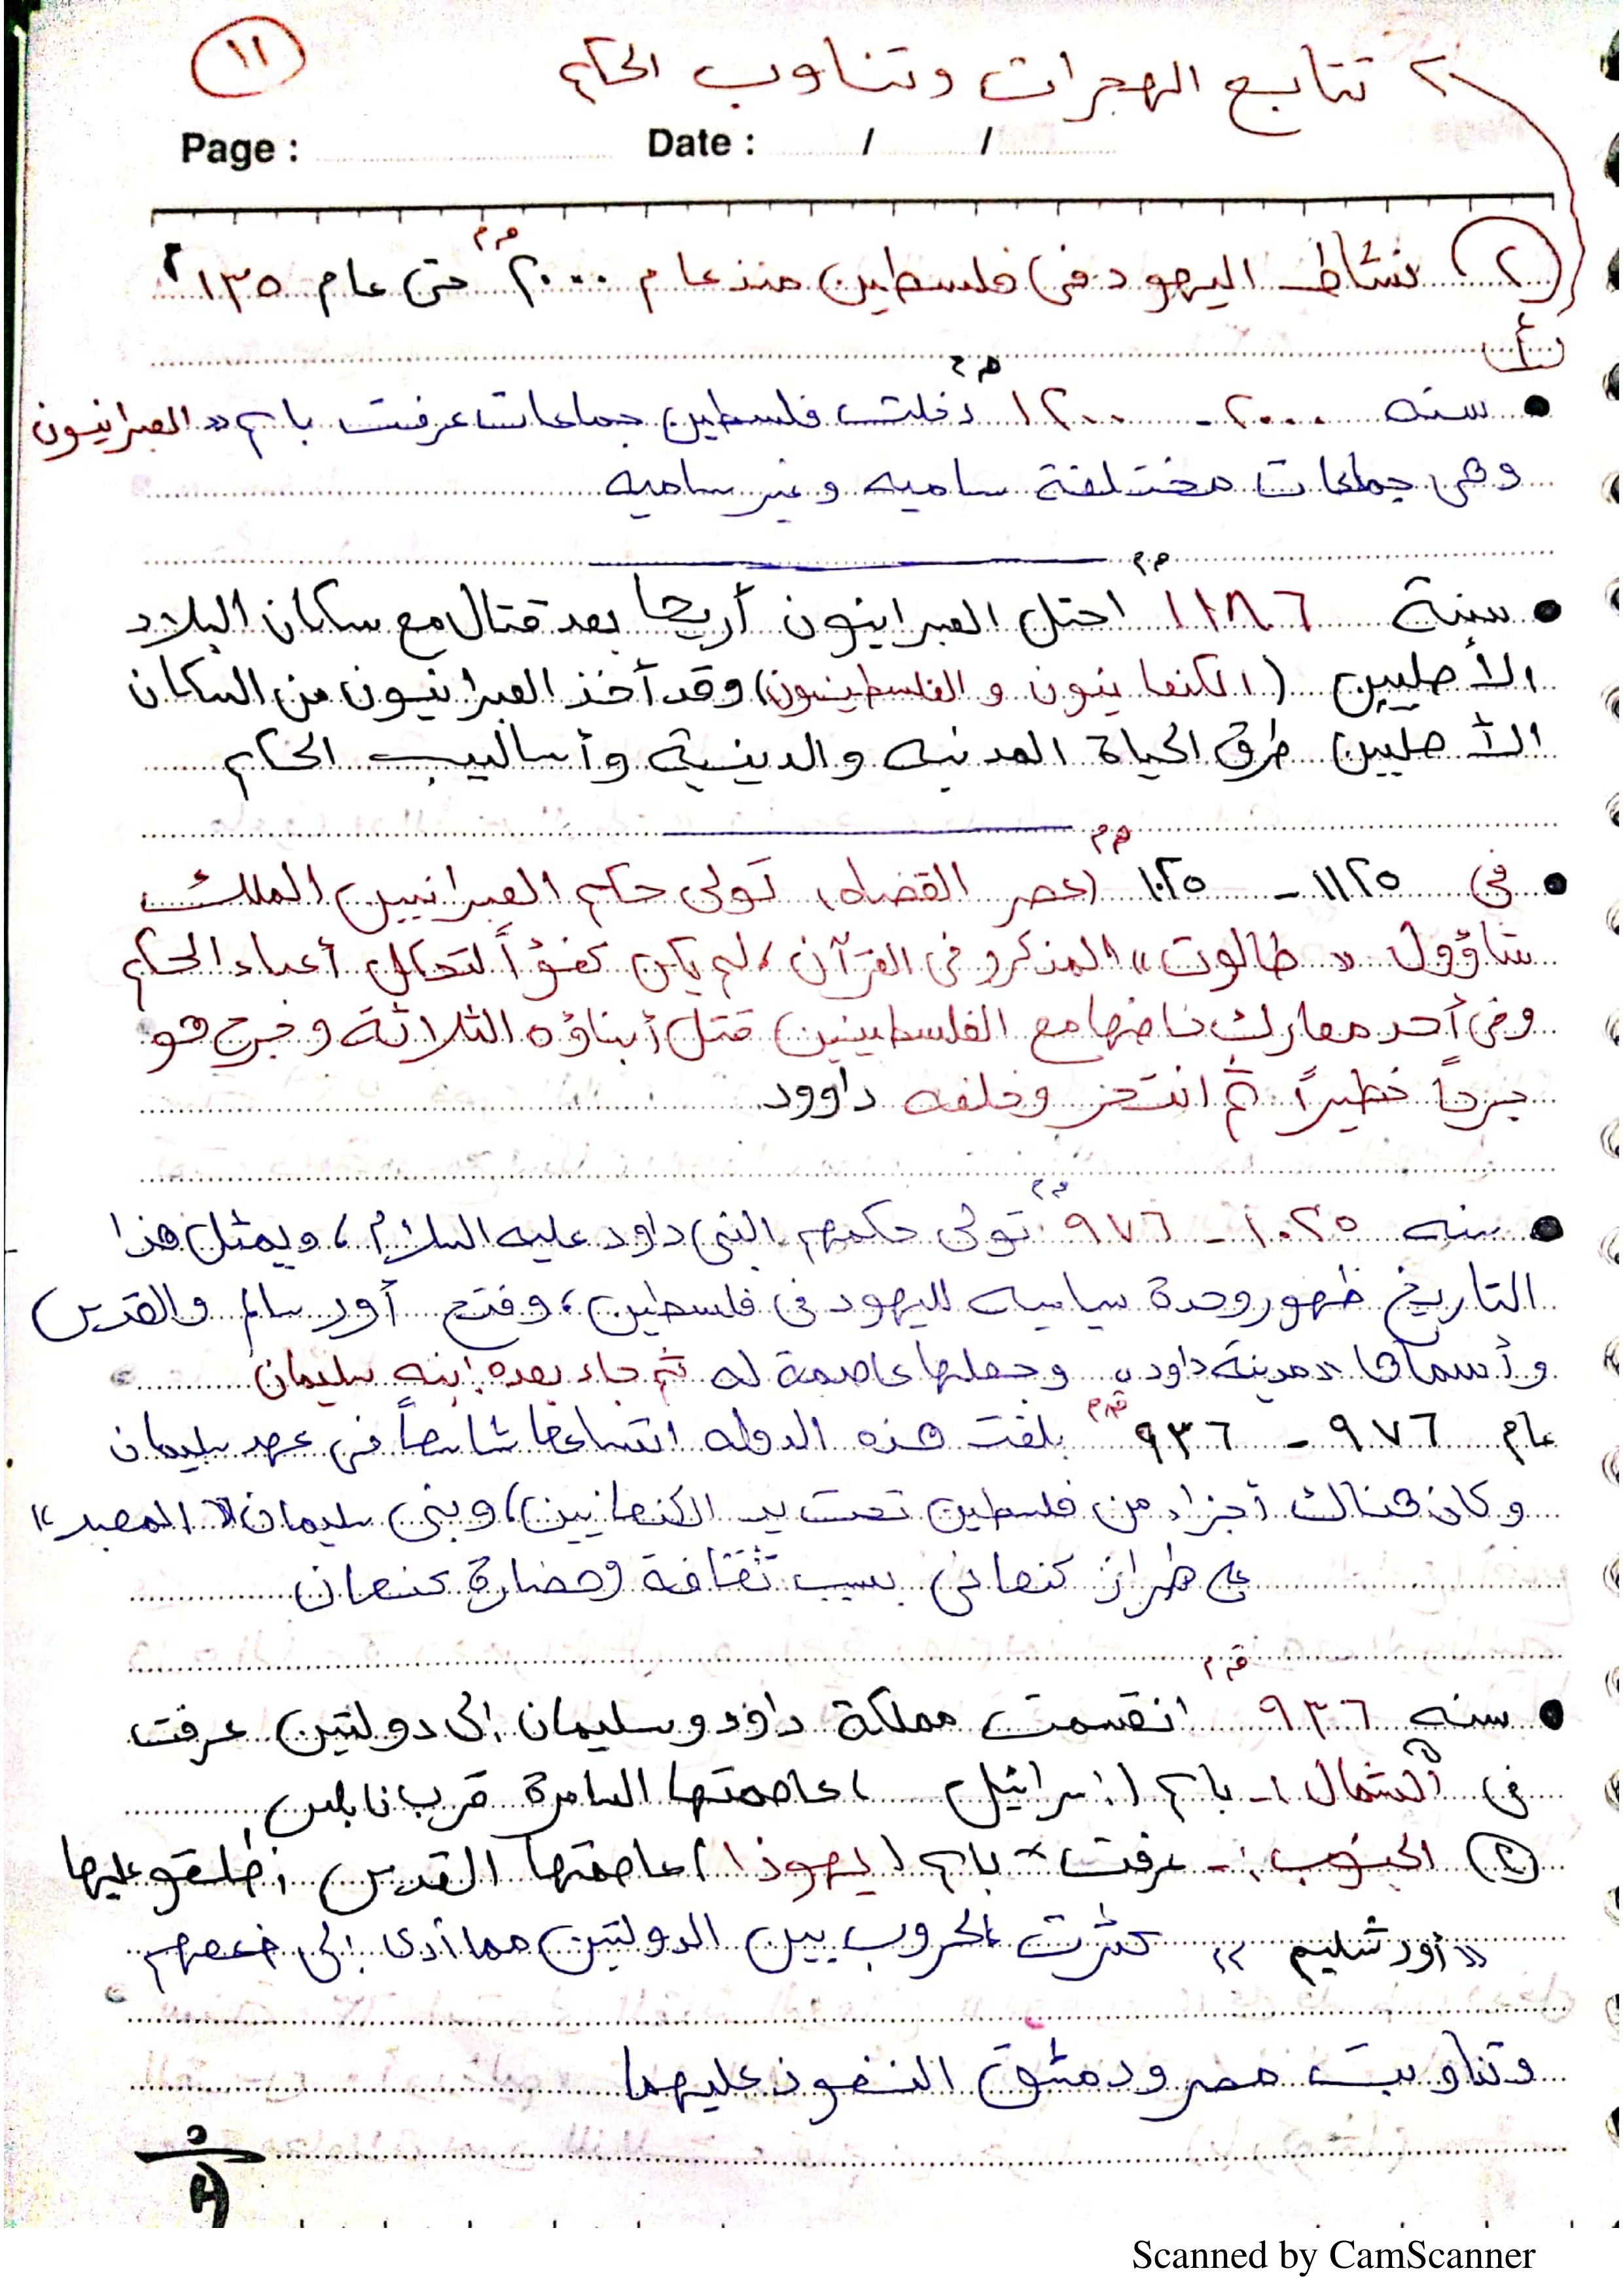 ١١
٢- تتابع الهجرات وتناوب الحكم
Page : Date : / /
(٢) نشاط اليهود في فلسطين منذ عام ٢٠٠٠ ق.م حتى عام ١٣٥ م
أ
● سنه ٢٠٠٠ - ١٢٠٠ ق.م دخلت فلسطين جماعات عرفت باسم «العبرانيون
وهى جماعات مختلفة ساميه وغير ساميه
● سنة ١١٨٦ ق.م احتل العبرانيون أريحا بعد قتال مع سكان البلاد
الأصليين (الكنعانيون و الفلسطينيون) وقد أخذ العبرانيون من السكان
الأصليين طرق الحياة المدنيه والدينية وأساليب الحكم
● في ١١٢٥ - ١٠٢٥ ق.م (عصر القضاه) تولى حكم العبرانيين الملك
شاؤول «طالوت» المذكور في القرآن، لم يكن كفؤاً لتحمل أعباء الحكم
وفي أحد معارك خاضها مع الفلسطينين قتل أبناؤه الثلاثة وجرح هو
جرحاً خطيراً ثم انتحر وخلفه داوود
● سنه ١٠٢٥ - ٩٧٦ ق.م تولى حكمهم النبي داود عليه السلام، ويمثل هذا
التاريخ ظهور وحدة سياسيه لليهود في فلسطين، وفتح أورسالم والقدس
وأسماها «مدينة داود» وجعلها عاصمة له ثم جاء بعده ابنه سليمان
عام ٩٧٦ - ٩٣٦ ق.م بلغت هذه الدوله اتساعها شاسعاً في عهد سليمان
وكان هناك أجزاء من فلسطين تحت يد الكنعانيين، وبنى سليمان «المعبد»
على طراز كنعاني بسبب ثقافة وحضارة كنعان
● سنه ٩٣٦ ق.م انقسمت مملكة داود وسليمان إلى دولتين عرفت
في ① الشمال :- باسم (إسرائيل ) عاصمتها السامرة قرب نابلس
② الجنوب :- عرفت باسم (يهوذا) عاصمتها القدس أطلقو عليها
«أورشليم» كثرت الحروب بين الدولتين مما أدى إلى ضعفهم
وتناوبت مصر ودمشق النفوذ عليهما
Scanned by CamScanner